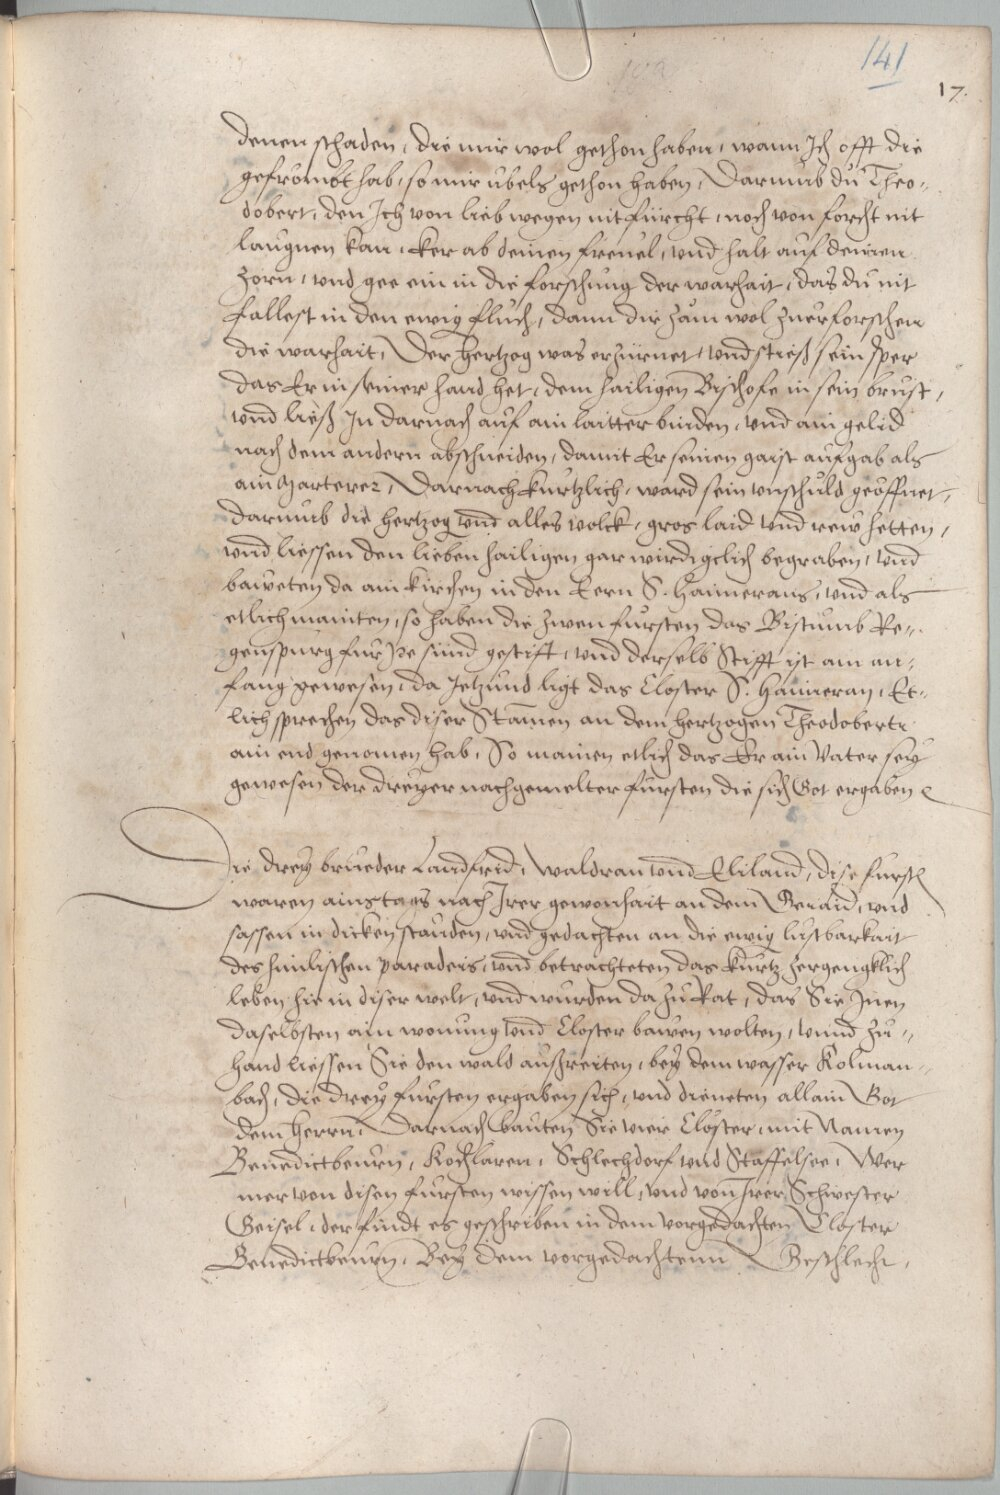 141
17.
denen schaden, die mir wol gethon haben, wann Ich offt die
gefrombt hab, so mir übels gethon haben, Darumb du Theo-
dobert, den Ich von lieb wegen nit fürcht, noch von forcht nit
laugnen kan, ker ab deinen freuel, und halt auf deinen
zorn, und gee ein in die forschung der warhait, das du nit
fallest in den ewig fluch, dann dir zam wol zuerforschen
die warhait, Der Hertzog was erzürnet, und stieß sein sper
das Er in seiner hand het, dem hailigen Bischofe in sein brust,
und ließ In darnach auf ain laitter binden, und ain gelid
nach dem andern abschneiden, damit Er seinen gaist aufgab als
ain Marterer, Darnach kurtzlich, ward sein unschuld geöffnet,
darumb die Hertzog und alles volck, gros laid und rew hetten,
und liessen den lieben hailigen gar wirdigclich begraben, und
baweten da ain kirchen in den Eern S. Haimerans, und als
etlich mainten, so haben die zwen fursten das Bistumb Re-
genspurg fur Ire sünd gestift, und derselb Stifft ist am an-
fang gewesen, da Jetzund ligt das Closter S. Haimeran, Et-
lich sprechen das diser Stamen an dem Hertzogen Theodoberte
ain end genomen hab, So mainen etlich das Er ain Vater sey
gewesen der dreyer nachgemelter fursten die sich Got ergaben
Die drey brueder Landfrid, Waldran und Eliland, dise furstn
waren ainstags nach Irer gewonhait an dem Geiaid, und
sassen in dicken stauden, und gedachten an die ewig lustbarkait
des himlischen paradeis, und betrachteten das kurtz zergengklich
leben hie in diser welt, und wurden da zu Rat, das Sie Inen
daselbsten ain wonung und Closter bawen wolten, unnd zu-
hand liessen Sie den wald außreiten, bey dem wasser Kolman-
bach, die drey fursten ergaben sich, und dieneten allain Got
dem herrn, Darnach bauten Sie vier Clöster, mit Namen
Benedictbeurn, Kochlaren, Schlechdorf und Staffelsee, Wer
mer von disen fursten wissen will, und von Irer Schwester
Geisel, der findt es geschriben in dem vorgedachten Closter
Benedictbeurn, Bey dem vorgedachtenn Geschlecht,